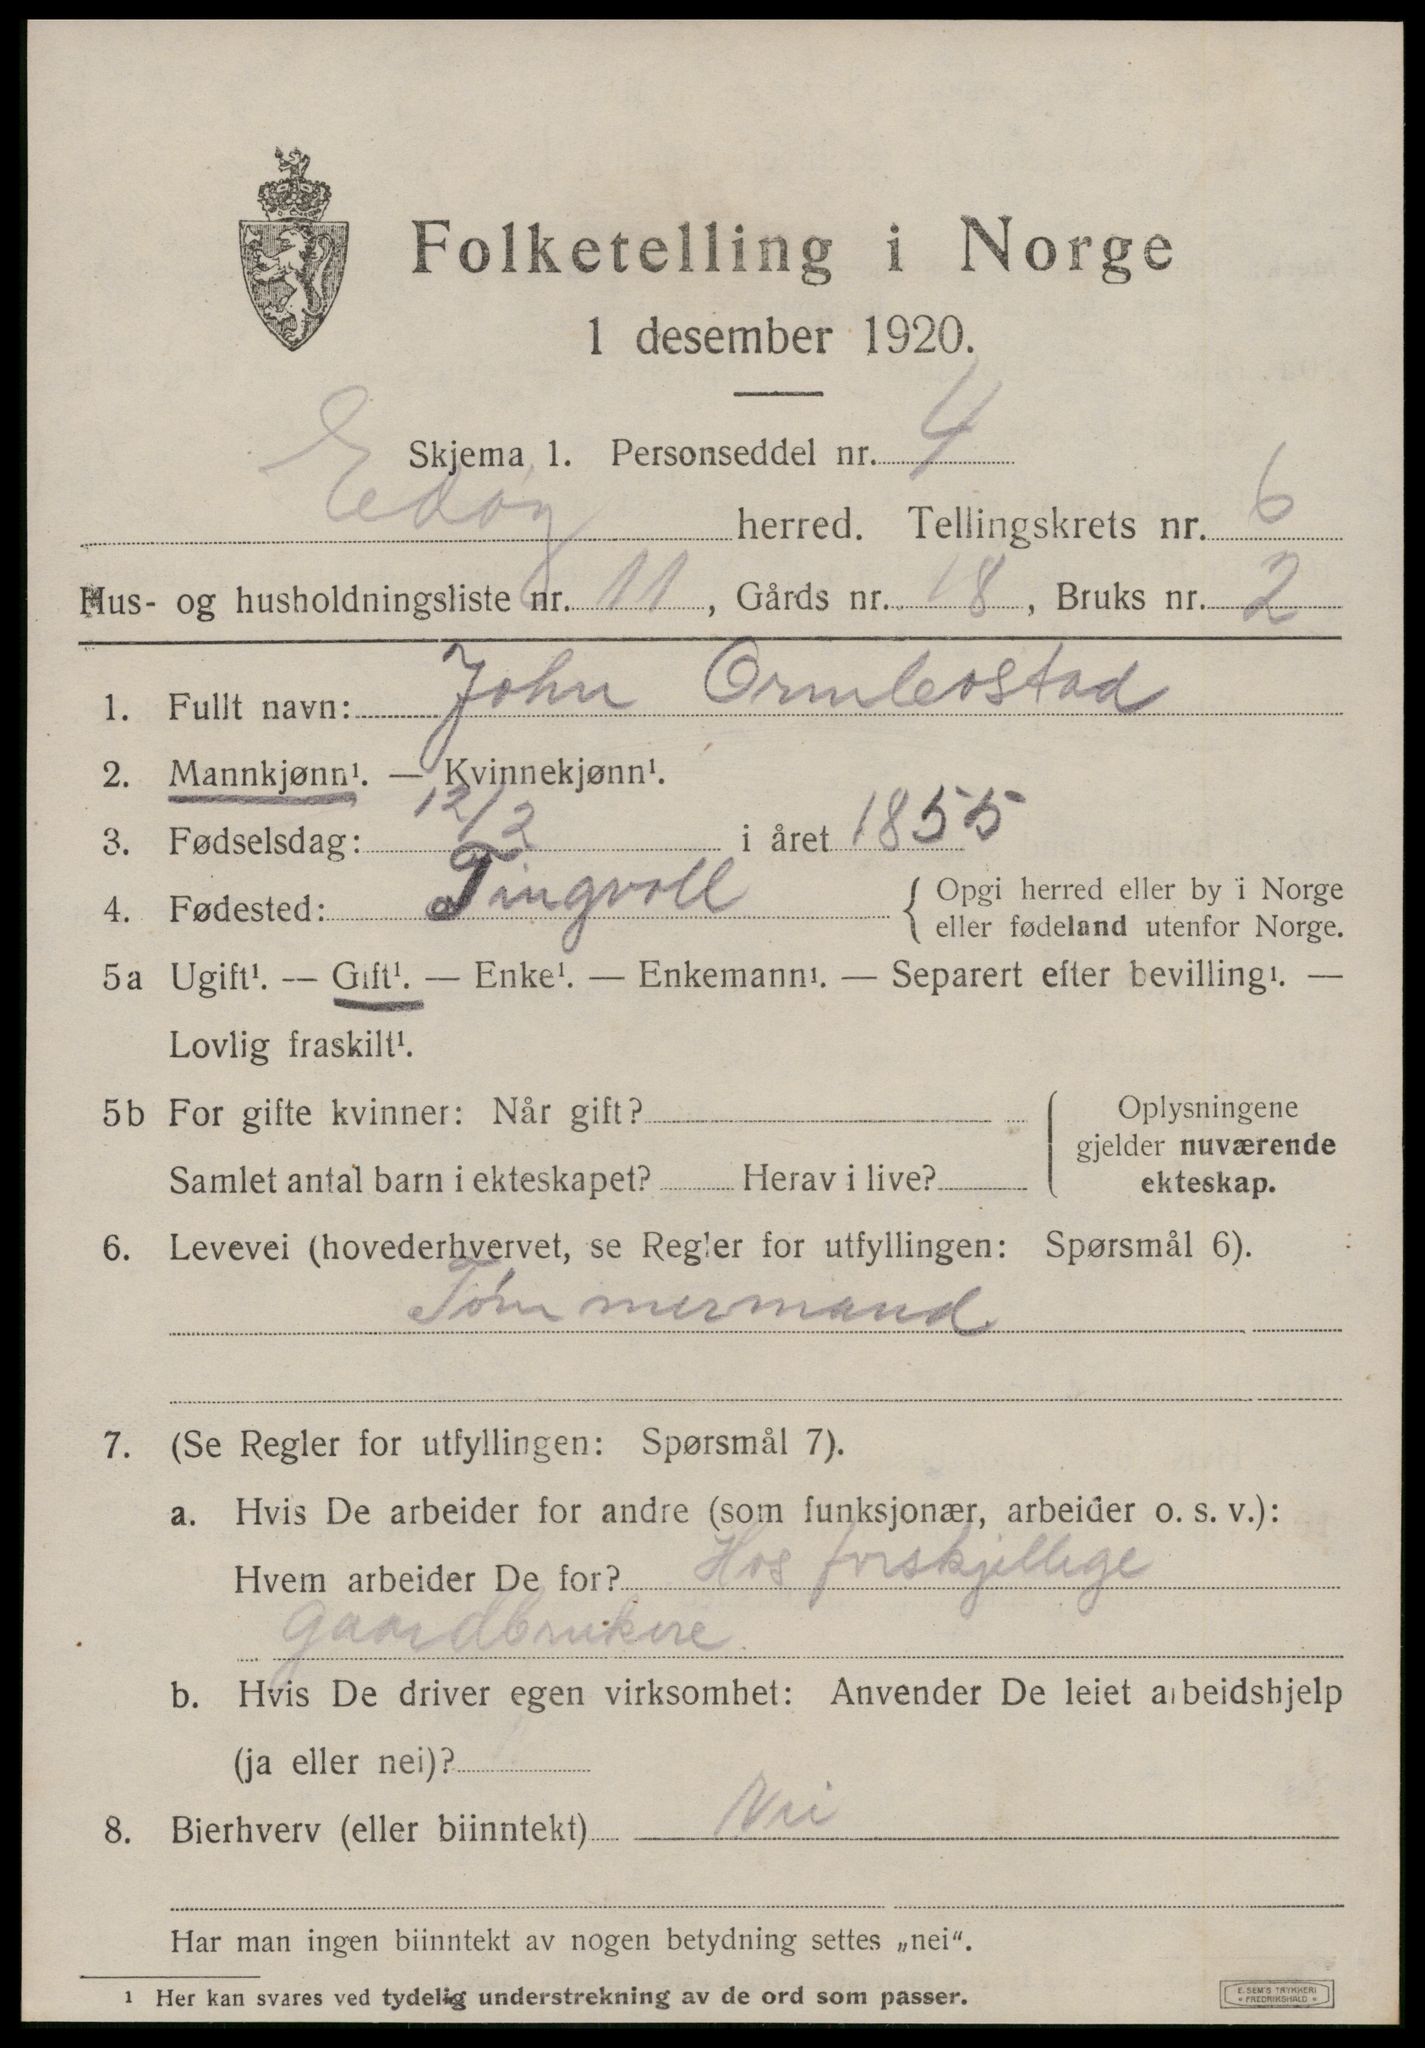 Folketelling i Norge
1 desember 1920.
Skjema 1. Personseddel nr. 4
Edøy herred. Tellingskrets nr. 6
Hus- og husholdningsliste nr. 11, Gårds nr. 18, Bruks nr. 2
1. Fullt navn: John Ormleostad
2. Mannkjønn¹. — Kvinnekjønn¹.
3. Fødselsdag: 12/2 i året 1855
4. Fødested: Tingvoll { Opgi herred eller by i Norge
eller fødeland utenfor Norge.
5a Ugift¹. — Gift¹. — Enke¹. — Enkemann¹. — Separert efter bevilling¹. —
Lovlig fraskilt¹.
5b For gifte kvinner: Når gift? Oplysningene
gjelder nuværende
Samlet antal barn i ekteskapet? Herav i live? ekteskap.
6. Levevei (hovederhvervet, se Regler for utfyllingen: Spørsmål 6).
Tømmermand
7. (Se Regler for utfyllingen: Spørsmål 7).
a. Hvis De arbeider for andre (som funksjonær, arbeider o. s. v.):
Hvem arbeider De for? Hos forskjellige
gaardbrukere
b. Hvis De driver egen virksomhet: Anvender De leiet arbeidshjelp
(ja eller nei)?
8. Bierhverv (eller biinntekt) Nei
Har man ingen biinntekt av nogen betydning settes „nei“.
¹ Her kan svares ved tydelig understrekning av de ord som passer.
E. SEM'S TRYKKERI
• FREDRIKSHALD •